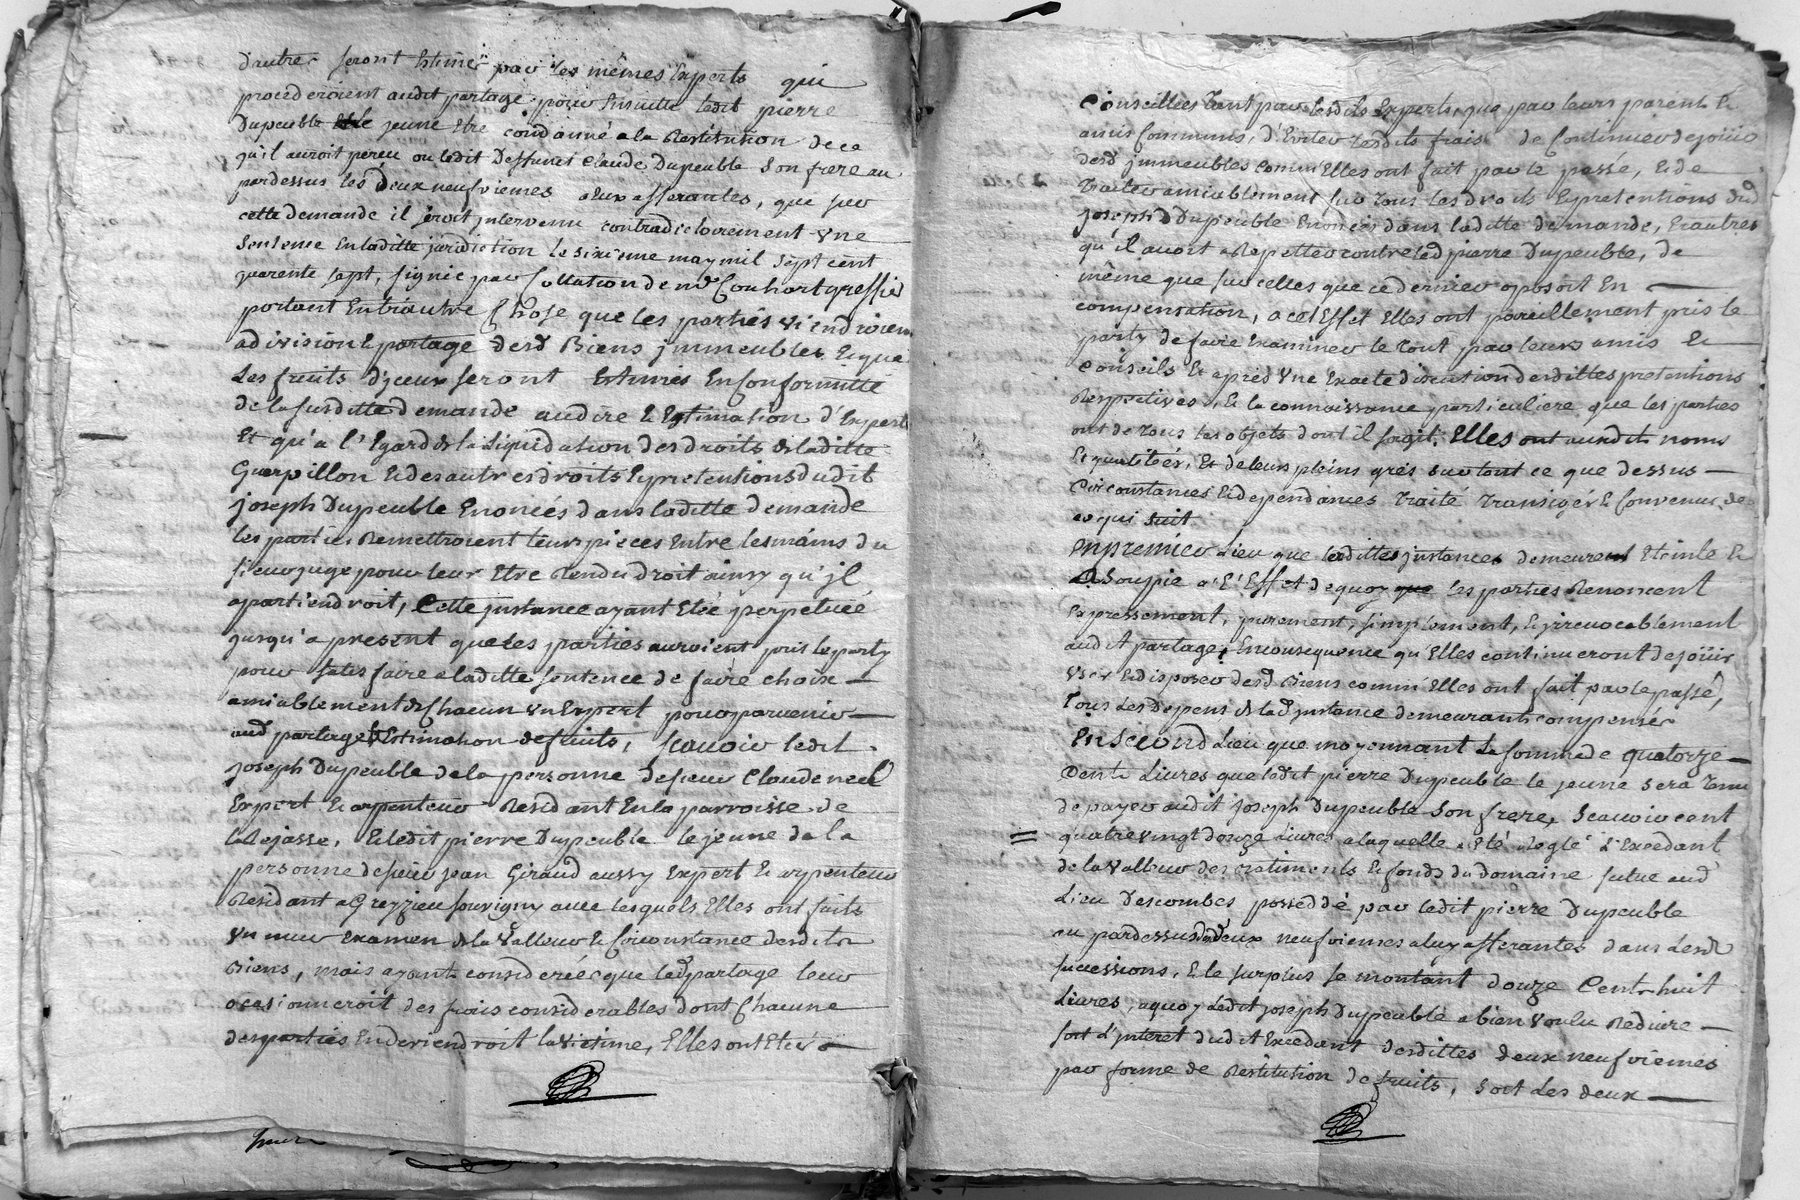 d'autres seront Estimés par les mêmes Experts qui
procederoient audit partage pour Ensuitte ledit pierre
Dupeuble jeune Etre condanné a la Restitution de ce
qu'il auroit perçu ou ledit Deffunct Claude Dupeuble son frere au
pardessus les deux neufviemes a eux afferantes, que sur
cette demande il seroit jntervenu contradictoirement vne
sentense En laditte jurisdiction le sixieme may mil sept cent
quarente sept, signée par Collation de me Couhort greffier
portant Entr'autre Chose que les parties viendroient
a division & partage desd Biens jmmeubles, & que
les fruits d'jceux seront Estimés En Conformitté
de la susditte demande audire & Estimation d'Experts
Et qu'a l'Egard de la Liquidation des droits de laditte
Guerpillon & des autres droits & pretentions dudit
joseph Dupeuble Enoncés dans laditte demande
les parties Remettroient leurs pieces Entre les mains du
sieur juge pour leur Etre Rendu droit ainsy qu'jl
apartiendroit, Cette jnstance ayant Etée perpetuée
jusqu'a present que les parties auroient pris le party
pour satisfaire a laditte sentence de faire choix
amiablement de Chacun vn Expert pour parvenir
aud partage & Estimation de fruits, sçauoir ledit
joseph Dupeuble de la personne de sieur Claude neel
Expert & arpenteur Residant En la parroisse de
la Rejasse, & ledit pierre Dupeuble le jeune de la
personne de sieur jean Giraud aussy Expert & arpenteur
Residant a Grezieu souvigny avec lesquels Elles ont faits
vn meur Examen de la Valleur & Circonstance desdits
Biens, mais ayant considerées que led partage leur
ocasionneroit des frais considerables dont Chacune
des parties En deviendroit la victime, Elles ont Eté
Conseillées tant par lesdits Experts que par leurs parents &
amis Communs, d'Eviter lesdits frais de Continuer de joüir
desd jmmeubles comm'Elles ont fait par le passé, & de
Traiter amiablement sur tous les droits & pretentions dud
joseph Dupeuble Enoncés dans laditte demande, & autres
qu'il auoit a Repetter contre led pierre Dupeuble, de
même que sur celles que ce dernier oposoit En
compensation, a cet Effet Elles ont pareillement pris le
party de faire Examiner le tout par leurs amis &
Conseils & après vne Exacte discution desdittes pretentions
Respectives, & la connoissance particuliere que les parties
ont de tous les objets dont il s'agit. Elles ont ausdits noms
& qualitées, Et de leurs pleins grés sur tout ce que dessus
Circonstances & dependances traité transigés & Convenus de
ce qui suit
En premier Lieu que lesdittes jnstances demeurent Eteinte &
assoupie a l'Effet de quoy les parties Renoncent
Expressement, purement, simplement, & jrrevocablement
audit partage, En consequence qu'Elles continueront de joüir
vser & disposer desd Biens comm'Elles ont fait par le passé,
tous les Depens de lad jnstance demeurants compensés
En second Lieu que moyennant la somme de quatorze
Cents Livres que ledit pierre Dupeuble le jeune sera tenu
de payer audit joseph Dupeuble son frere, sçauoir cent
quatre vingt douze Livres a laquelle a Eté Reglé l'Excedant
de la valleur des Batiments & fonds du domaine situé aud
Lieu Descombes posseddé par ledit pierre Dupeuble
au pardessus deux neufviemes a luy afferantes dans lesd
successions, & le surplus se montant douze Cents huit
Livres, a quoy ledit joseph Dupeuble a bien voulu Reduire
soit l'jnteret dudit Excedant desdittes deux neufviemes
par forme de Restitution de fruits, soit les deux